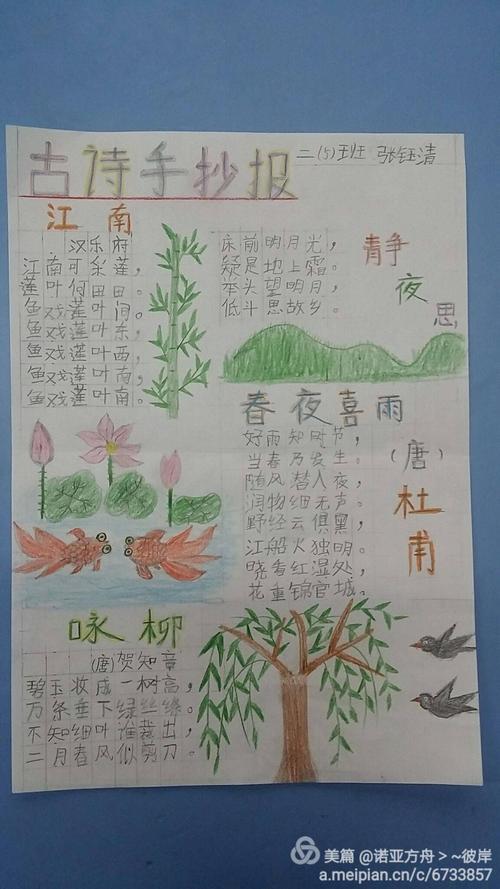 古诗手抄报
二(5)班 张钰清
江南
汉乐府
江南可采莲，
莲叶何田田。
鱼戏莲叶间。
鱼戏莲叶东，
鱼戏莲叶西，
鱼戏莲叶南，
鱼戏莲叶南。
静夜思
床前明月光，
疑是地上霜。
举头望明月，
低头思故乡。
春夜喜雨
(唐)杜甫
好雨知时节，
当春乃发生。
随风潜入夜，
润物细无声。
野经云俱黑，
江船火独明。
晓看红湿处，
花重锦官城。
咏柳
(唐)贺知章
碧玉妆成一树高，
万条垂下绿丝绦。
不知细叶谁裁出，
二月春风似剪刀。
美篇 @诺亚方舟>~彼岸
a.meipian.cn/c/6733857